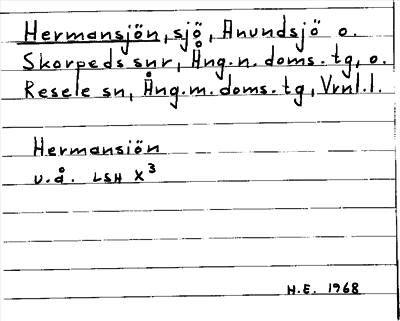 Hermansjön, sjö, Anundsjö o.
Skorpeds snr, Ång.n.doms.tg, o.
Resele sn, Ång.m.doms.tg, Vrnl.l.
Hermansiön
u.å. LSH X³
H.E. 1968